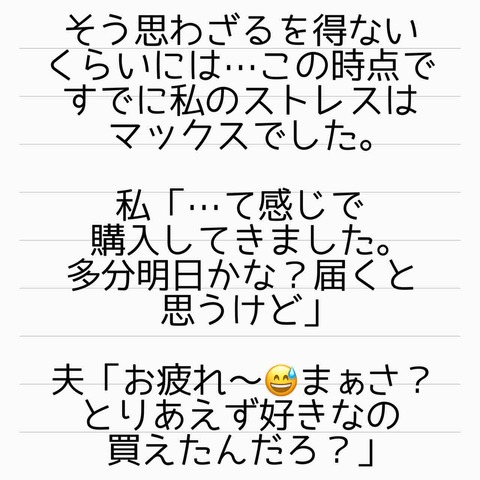 そう思わざるを得ない
くらいには…この時点で
すでに私のストレスは
マックスでした。
私「…て感じで
購入してきました。
多分明日かな？届くと
思うけど」
夫「お疲れ〜😅まぁさ？
とりあえず好きなの
買えたんだろ？」